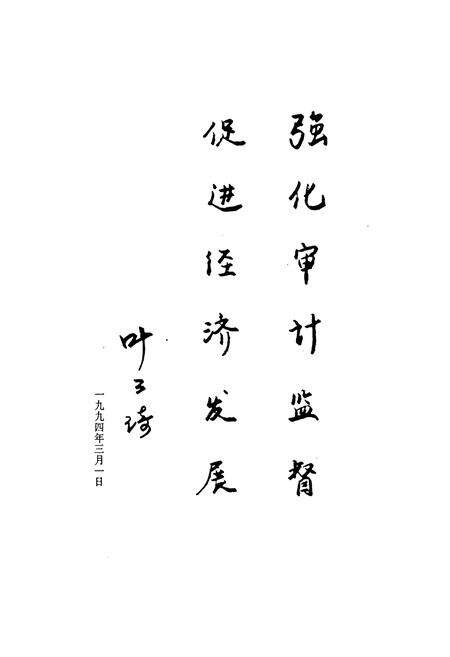 强化审计监督
促进经济发展
叶
一九九四年三月一日